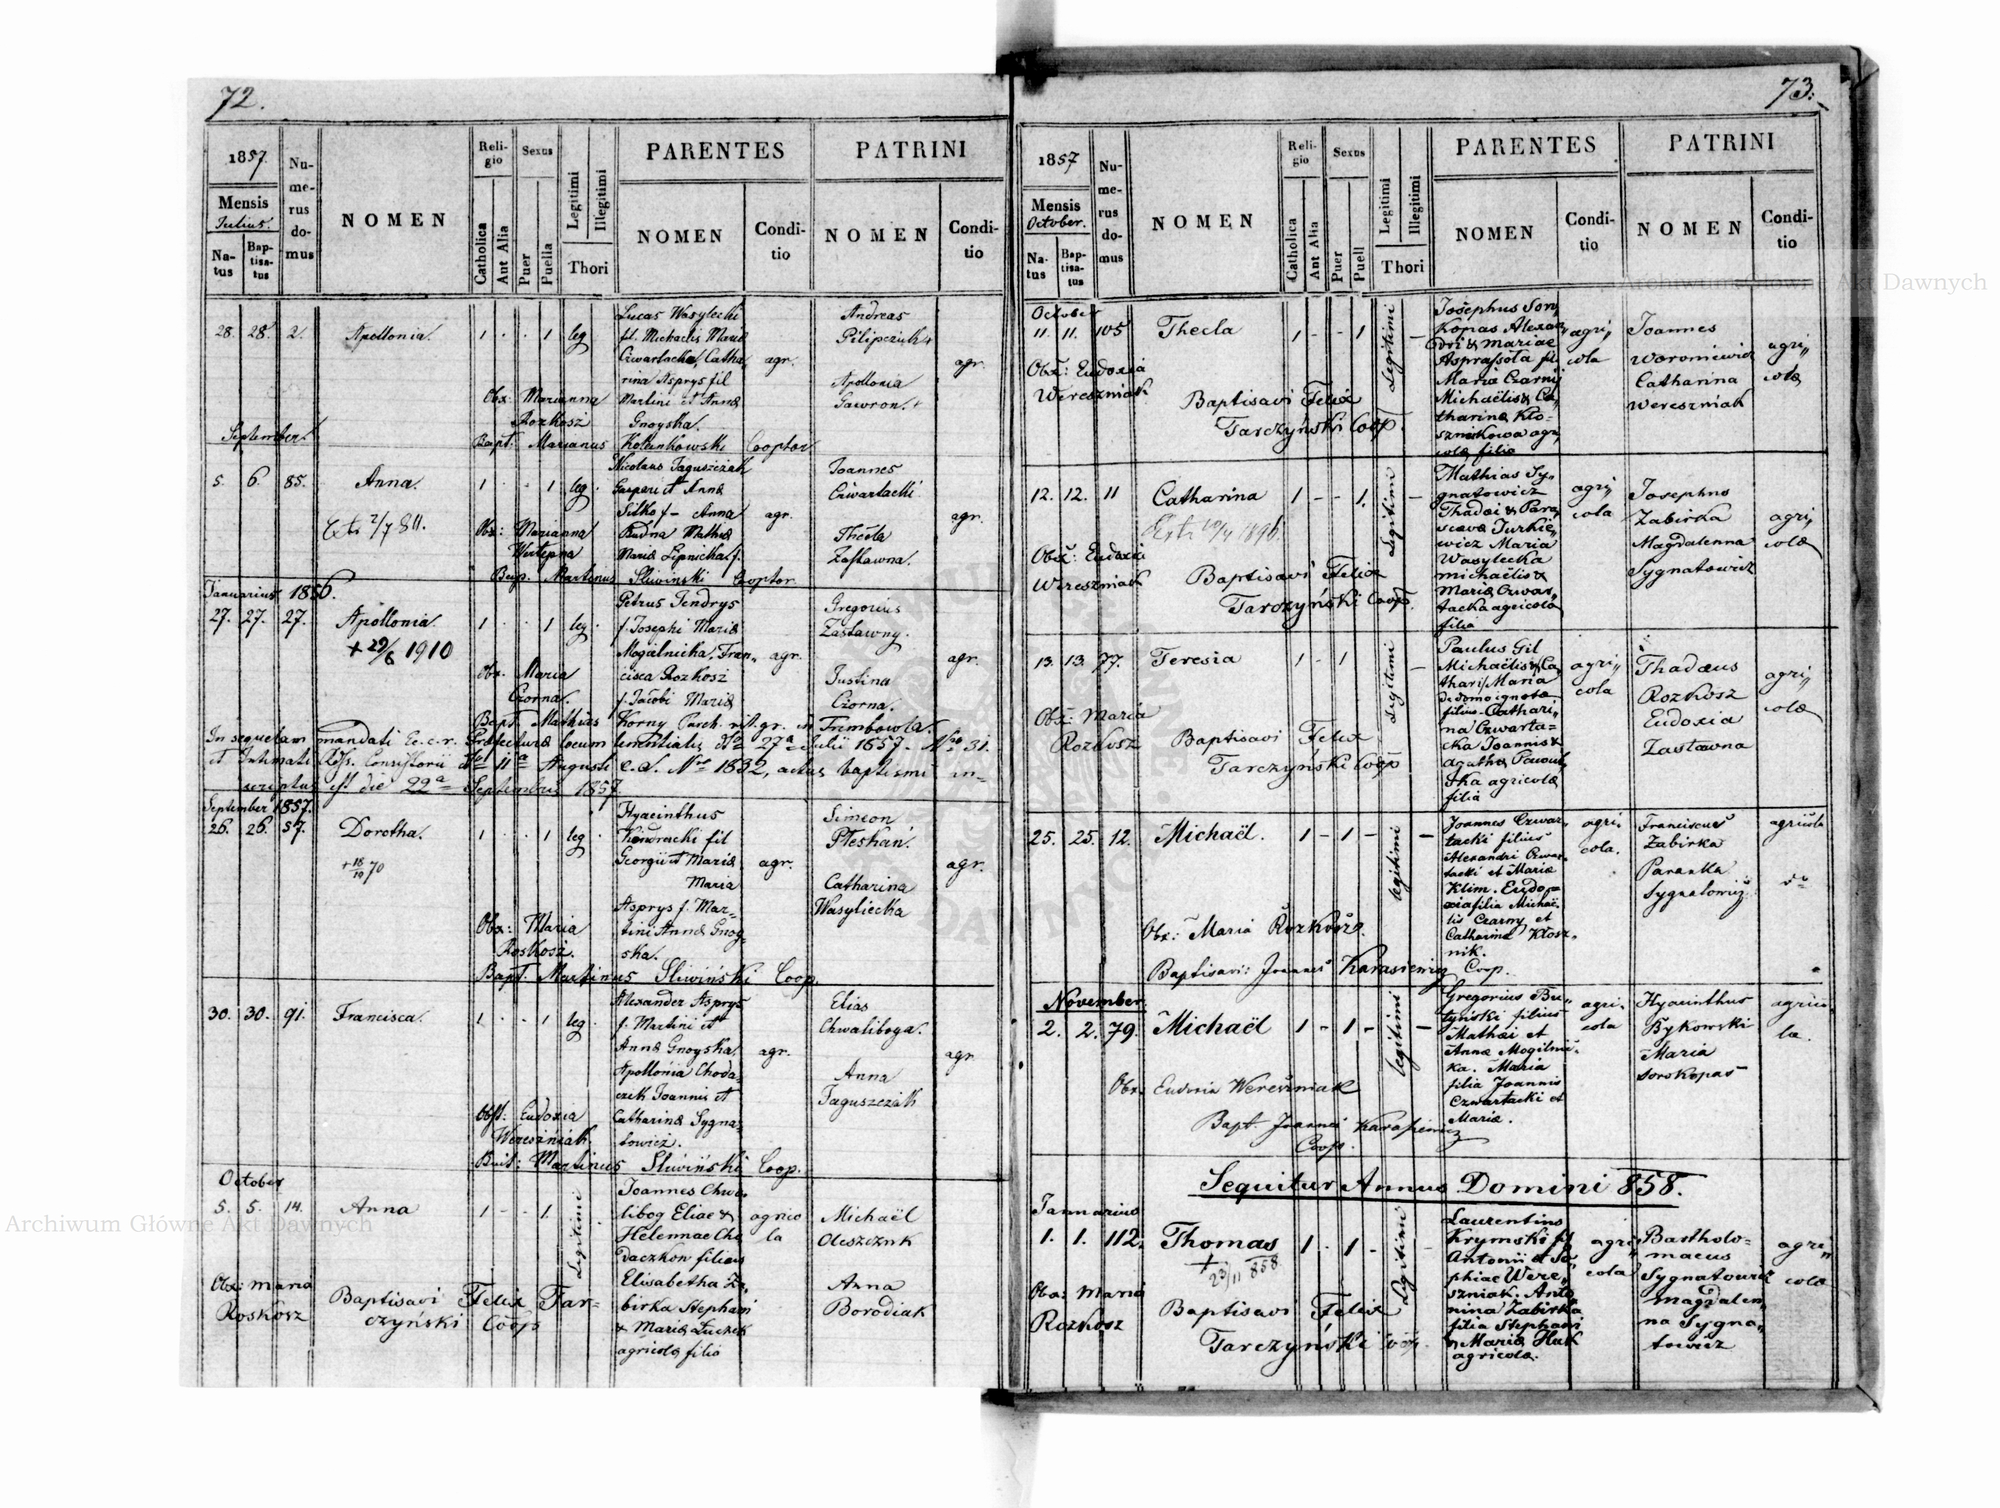 72.
1857.
Numerus domus
NOMEN
Religio
Sexus
Legitimi
Illegitimi
PARENTES
PATRINI
Mensis
Julius.
Natus
Baptisatus
Catholica
Aut Alia
Puer
Puella
Thori
NOMEN
Conditio
NOMEN
Conditio
28. 28. 2. Apollonia. 1 . . 1 leg
Lucas Wasylecki
fil. Michaelis Mariæ
Czwartacka, Catha,
rina Asprys fil
Martini et Annæ
Gnoyska.
agr.
Andreas
Pilipczuk +
Apollonia
Gawron. +
agr.
Obx: Marianna
Rozkosz
Bapt. Marianus Koldunkowski Cooptor
September.
5. 6. 85. Anna. 1 . . 1 leg.
Nicolaus Taguszczak
Gaspari et Annæ
Sitko f – Anna
Budna Mathiæ
Mariæ Lipnicka f.
agr.
Joannes
Czwartacki
Thecla
Zastawna.
agr.
Obx: Marianna
Wertepna
Bap. Martinus Sliwiński Cooptor.
Januarius 1856.
27. 27. 27. Apollonia. 1 . . 1 leg.
+ 29/6 1910
Petrus Jendrys
f. Josephi Mariæ
Mogielnicka. Fran,
cisca Rozkosz
f. Jacobi Mariæ
agr.
Gregorius
Zastawny.
Justina
Czorna.
agr.
Obx. Maria
Czorna.
Bapt. Mathias Horny Paroch. rit. gr. in Trembowla.
In sequelam mandati C.c.r. Præfecturæ locum tenentialis ddo 27a Julii 1857 – Nro 31.
et Intimati Rdss. Consistorii ddo 11a Augusti c.a. Nro 1832, actus baptismi in=
scriptus est die 22a Septembris 1857
September 1857.
26. 26. 57. Dorotha. 1 . . 1 leg.
+ 18/10 70
Hyacinthus
Kondracki fil
Georgii et Mariæ
Maria
Asprys f. Mar-
tini Annæ Gnoy-
ska.
agr.
Simeon
Pleskań.
Catharina
Wasyliecka
agr.
Obx: Maria
Roskosz.
Bapt. Martinus Sliwiński Coop.
30. 30. 91. Francisca. 1 . - 1 leg.
Alexander Asprys
f. Martini et
Annæ Gnoyska.
Apollonia Choda-
czek Joannis et
Catharinæ Sygna-
towicz.
agr.
Elias
Chwaliboga.
Anna
Taguszczak
agr
Obst: Eudoxia
Wereszniak.
Martinus Sliwiński Coop.
October
5. 5. 14. Anna 1 - - 1. Legitimi
Joannes Chwa,
libog Eliae &
Helennae Cho
daczkon filius
Elisabetha Za,
birka Stephani
& Mariæ Łuczek
agricolæ filia
agrico
la
Michaël
Oleszczuk
Anna
Borodiak
Obx: Maria
Roskosz
Baptisavi Felix Tar-
czyński Coop
73.
1857
Numerus domus
NOMEN
Religio
Sexus
Legitimi
Illegitimi
PARENTES
PATRINI
Mensis
October.
Natus
Baptisatus
Catholica
Aut Alia
Puer
Puell
Thori
NOMEN
Conditio
NOMEN
Conditio
October
11. 11. 105 Thecla 1 - - 1 Legitimi –
Josephus Soro,
kopas Alexan,
dri & Mariae
Asprassota fil.
Maria Czarny
Michaëlis & Ca,
tharinæ Kło-
sznikowa agri,
colæ filia
agri,,
cola
Joannes
Woroniewicz
Catharina
Wereszniak
agri,,
colæ
Obx: Eudoxia
Wereszniak
Baptisavi Felix
Tarczyński Coop.
12. 12. 11 Catharina 1 - - 1. Legitimi –
1896.
Mathias Sy,
gnatowicz
Thadæi & Para,
scevæ Turkie,
wicz Maria
Wasylecka
Michaëlis &
Mariæ Czwar,
tacka agricolæ
filia
agri,,
cola
Josephus
Zabirka
Magdalenna
Sygnatowicz
agri,,
colæ
Obx: Eudoxia
Wereszniak
Baptisavi Felix
Tarczyński Coop.
13. 13. 77. Teresia 1 - 1 Legitimi –
Paulus Gil
Michaëlis & Ca,
thari/Maria
de domo ignotæ
filius – Cathari,
na Czwarta=
cka Joannis &
Agathæ Pawlu,
ska agricolæ
filia
agri,,
cola
Thadæus
Rozkosz
Eudoxia
Zastawna
agri,,
colæ
Obx: Maria
Rozkosz
Baptisavi Felix
Tarczyński Coop
25. 25. 12. Michaël. 1 - 1 - legitimi –
Joannes Czwar,
tacki filius
Alexandri Czwar-
tacki et Mariæ
Klim. Eudo=
xia filia Michaë-
lis Czarny et
Catharinæ Kłosz-
nik.
agri-
cola.
Franciscus
Zabirka
Paraska
Sygnatowicz
agricola
do
Obx: Maria Rozkosz.
Baptisavi: Joannes Karasiewicz Coop.
November
2. 2. 79. Michaël 1 - 1 - legitimi –
Gregorius Bu-
tyński filius
Mathæi et
Annæ Mogilnic-
ka. Maria
filia Joannis
Czwartacki et
Mariæ.
agri-
cola
Hyacinthus
Bykowski
Maria
Sorokopas
agrico-
la.
Obx: Eudoxia Wereszniak
Bapt. Joannes Karasiewicz
Coop.
Sequitur Annus Domini 858.
Januarius
1. 1. 112. Thomas 1 . 1 - Legitimi –
+
23/11 858
Laurentius
Krymski fil
Antonii et So,
phiae Were,
szniak. Anto
nina Zabirka
filia Stephani
& Mariæ Huk
agricolæ.
agri,,
cola
Bartholo=
maeus
Sygnatowicz
Magdalen,
na Sygna,
towicz
agri,,
colæ
Obx: Maria
Rozkosz
Baptisavi Felix
Tarczyński Coop.
Archiwum Główne Akt Dawnych
Archiwum Główne Akt Dawnych